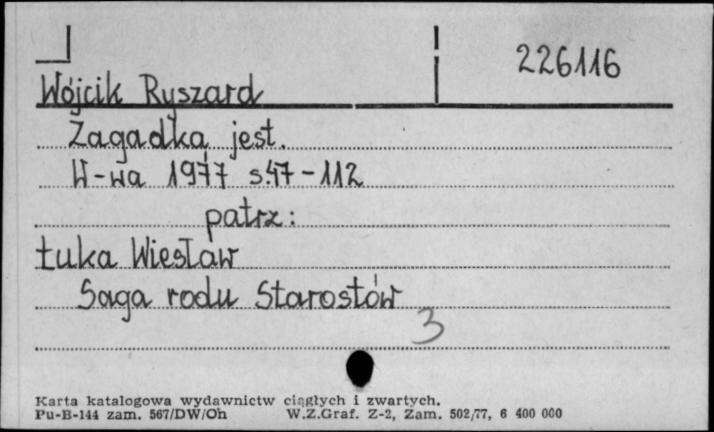 226116
Wójcik Ryszard
Zagadką jest.
W-wa 1977 s.47-112
patrz:
Łuka Wiesław
Saga rodu Starostów
3
Karta katalogowa wydawnictw ciągłych i zwartych.
Pu-B-144 zam. 567/DW/Oh W.Z.Graf. Z-2, Zam. 502/77, 6 400 000